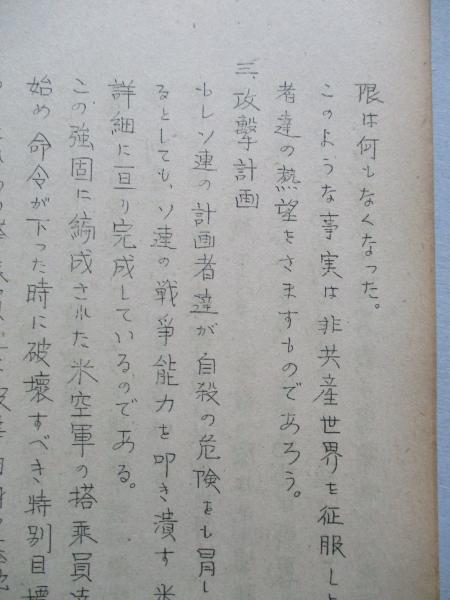 限は何もなくなった。
このような事実は非共産世界を征服しよ
者達の熱望をさますものであろう。
三、攻撃計画
もしソ連の計画者達が自殺の危険をも冒し
るとしても、ソ連の戦争能力を叩き潰す米
詳細に亘り完成しているのである。
この強固に編成された米空軍の搭乗員達
始め命令が下った時に破壊すべき特別目標